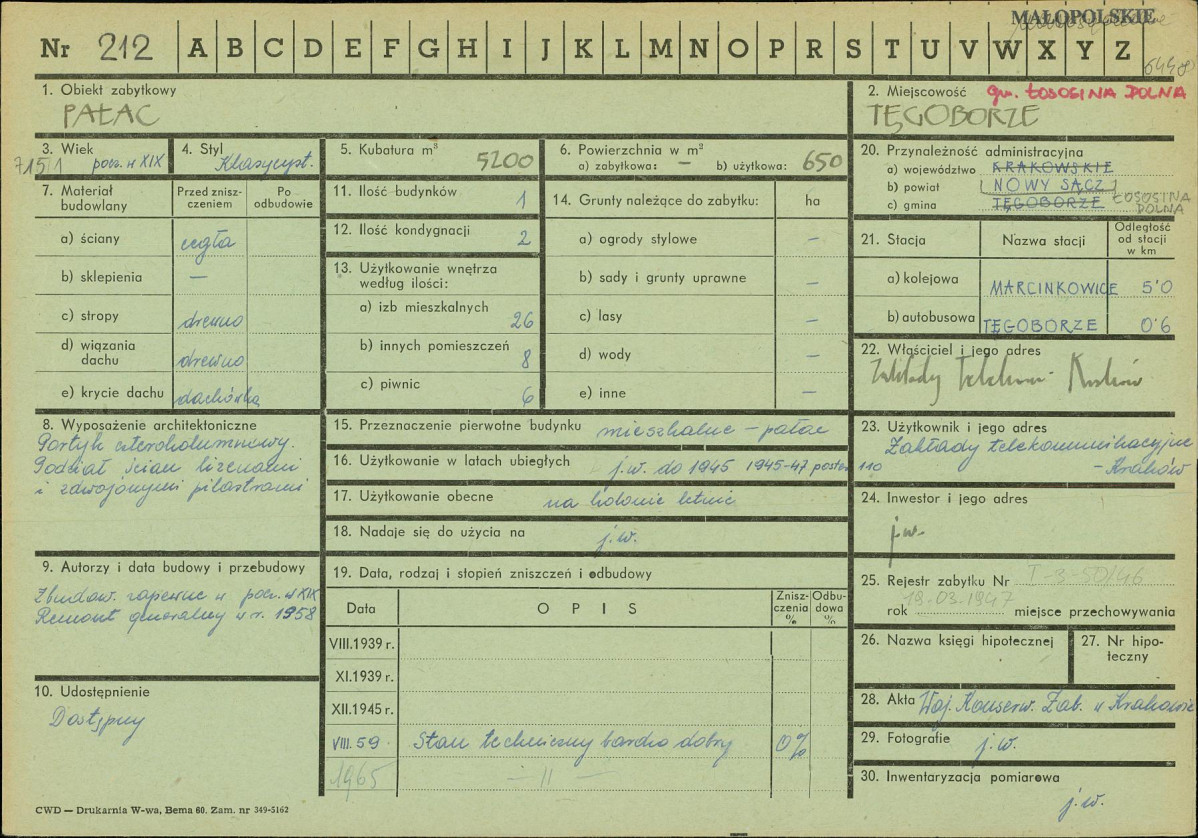 MAŁOPOLSKIE
Nr 212 A B C D E F G H I J K L M N O P R S T U V W X Y Z
1. Obiekt zabytkowy
PAŁAC
2. Miejscowość gm. ŁOSOSINA DOLNA
TĘGOBORZE
3. Wiek
pocz. w XIX
4. Styl
Klasycyst.
5. Kubatura m³
5200
6. Powierzchnia w m²
a) zabytkowa: — b) użytkowa: 650
20. Przynależność administracyjna
a) województwo KRAKOWSKIE
b) powiat NOWY SĄCZ
c) gmina TĘGOBORZE ŁOSOSINA DOLNA
7. Materiał budowlany
Przed zniszczeniem
Po odbudowie
a) ściany cegła
b) sklepienia —
c) stropy drewno
d) wiązania dachu drewno
e) krycie dachu dachówka
11. Ilość budynków 1
12. Ilość kondygnacji 2
13. Użytkowanie wnętrza według ilości:
a) izb mieszkalnych 26
b) innych pomieszczeń 8
c) piwnic 6
14. Grunty należące do zabytku: ha
a) ogrody stylowe —
b) sady i grunty uprawne —
c) lasy —
d) wody —
e) inne —
21. Stacja
Nazwa stacji
Odległość od stacji w km
a) kolejowa MARCINKOWICE 5'0
b) autobusowa TĘGOBORZE 0'6
22. Właściciel i jego adres
Zakłady Telekom. Kraków
8. Wyposażenie architektoniczne
Portyk czterokolumnowy.
Podział ścian lizenami
i zdwojonymi pilastrami
15. Przeznaczenie pierwotne budynku mieszkalne – pałac
16. Użytkowanie w latach ubiegłych j.w. do 1945 1945-47
17. Użytkowanie obecne na kolonie letnie
18. Nadaje się do użycia na j.w.
23. Użytkownik i jego adres
Zakłady telekomunikacyjne
– Kraków
24. Inwestor i jego adres
j.w.
9. Autorzy i data budowy i przebudowy
Zbudow. zapewne w pocz. w XIX
Remont generalny w r. 1958
19. Data, rodzaj i stopień zniszczeń i odbudowy
Data
O P I S
Zniszczenia %
Odbudowa %
VIII.1939 r.
XI.1939 r.
XII.1945 r.
VIII.59. Stan techniczny bardzo dobry 0%
1965 — 11 —
25. Rejestr zabytku Nr I-3-50/46
rok 19.03.1947 miejsce przechowywania
26. Nazwa księgi hipotecznej
27. Nr hipoteczny
10. Udostępnienie
Dostępny
28. Akta Woj. Konserw. Zab. w Krakowie
29. Fotografie j.w.
30. Inwentaryzacja pomiarowa
j.w.
CWD — Drukarnia W-wa, Bema 60. Zam. nr 349-5162